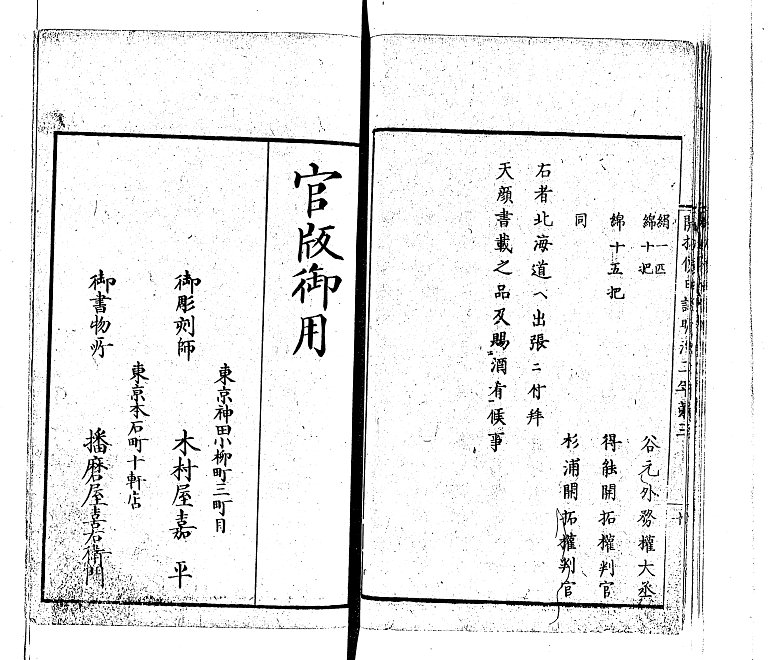 絹一匹
綿十把
谷元外務權大丞
綿十五把
得能開拓權判官
同
杉浦開拓權判官
右者北海道ヘ出張ニ付拜
天顔書載之品及賜酒有候事
官版御用
東京神田小柳町三町目
御彫刻師 木村屋嘉平
東京本石町十軒店
御書物所 播磨屋喜右衛門